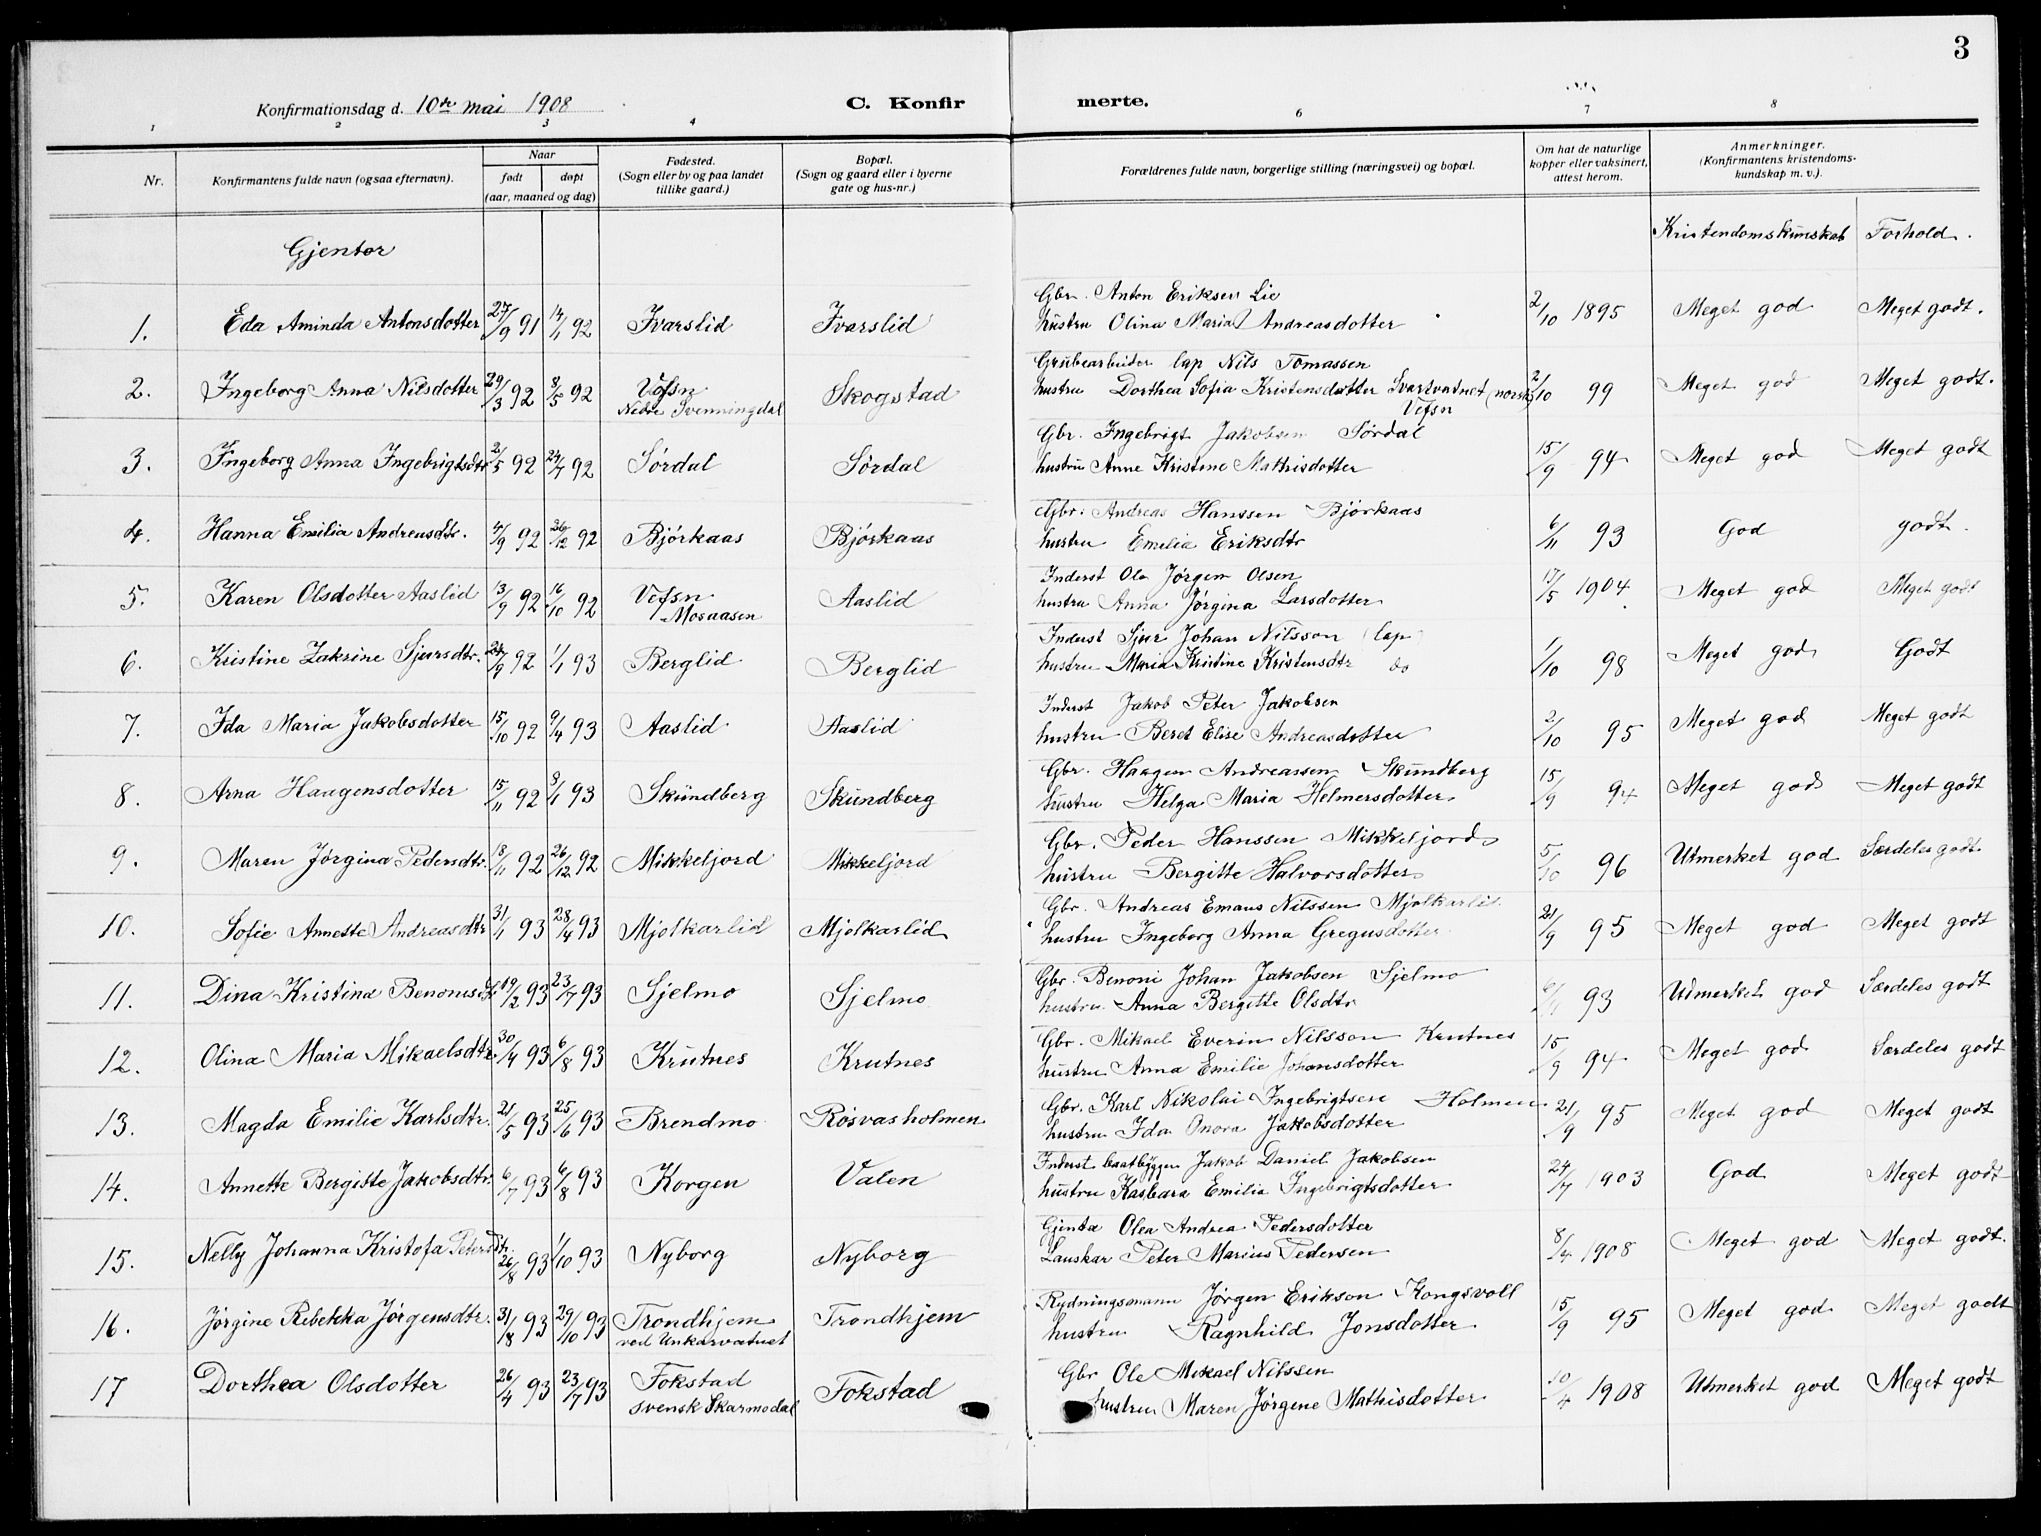 3
Konfirmationsdag d. 10de mai 1908
C. Konfirmerte.
1 2 3 4 6 7 8
Nr.
Konfirmantens fulde navn (ogsaa efternavn).
Naar
født døpt
(aar, maaned og dag)
Fødested.
(Sogn eller by og paa landet
tillike gaard.)
Bopæl.
(Sogn og gaard eller i byerne
gate og hus-nr.)
Forældrenes fulde navn, borgerlige stilling (næringsvei) og bopæl.
Om hat de naturlige
kopper eller vaksinert,
attest herom.
Anmerkninger.
(Konfirmantens kristendoms-
kundskap m. v.).
Gjentor
Kristendomskunskab Forhold.
Gbr. Anton Eriksen Lie
1. Eda Aminda Antonsdotter 27/9 91 14/1 92 Ivarslid Ivarslid hustru Olina Maria Andreasdotter 2/10 1895 Meget god Meget godt.
Grubearbeider lap Nils Tomassen
2. Ingeborg Anna Nilsdotter 29/3 92 8/5 92 Vefsn Skogstad hustru Dorthea Sofia Kristensdotter Svartvatnet (norsk) 2/10 99 Meget god Meget godt.
Nedre Svenningdal Vefsn
Gbr. Ingebrigt Jakobsen Sørdal
3. Ingeborg Anna Ingebrigtsdtr 2/5 92 24/7 92 Sørdal Sørdal hustru Anne Kristene Mathisdotter 15/9 94 Meget god Meget godt
Gbr. Andreas Hanssen Bjørkaas
4. Hanna Emilia Andreasdtr. 4/9 92 26/12 92 Bjørkaas Bjørkaas hustru Emelia Eriksdtr 6/11 93 God godt.
Inderst Ole Jørgen Olsen
5. Karen Olsdotter Aaslid 13/9 92 16/10 92 Vefsn Aaslid hustru Anna Jørgina Larsdotter 17/5 1904 Meget god Meget godt
Mosaasen
Inderst Sjur Johan Nilsson lap
6. Kristine Zakrine Sjursdtr. 92 1/1 93 Berglid Berglid hustru Maria Kristine Kristensdtr do 1/10 98 Meget god Godt
Inderst Jakob Peter Jakobsen
7. Ida Maria Jakobsdotter 15/10 92 9/4 93 Aaslid Aaslid hustru Beret Elise Andreasdotter 2/10 95 Meget god Meget godt
Gbr. Haagen Andreassen Skundberg
8. Arna Haagensdotter 15/11 92 8/1 93 Skundberg Skundberg hustru Helga Maria Helmersdotter 15/9 94 Meget god Meget godt
Gbr. Peder Hanssen Mikkeljord
9. Maren Jørgina Pedersdtr. 18/11 92 26/12 92 Mikkeljord Mikkeljord hustru Bergitte Halvorsdotter 5/10 96 Utmerket god Særdeles godt
Gbr. Andreas Emaus Nilssen Mjølkarlid
10. Sofie Annette Andreasdtr 31/1 93 28/4 93 Mjølkarlid Mjølkarlid hustru Ingeborg Anna Gregusdotter 21/9 95 Meget god Meget godt
Gbr. Benoni Johan Jakobsen Sjelmo
11. Dina Kristina Benonisdtr 19/2 93 23/7 93 Sjelmo Sjelmo hustru Anna Bergitte Olsdtr 93 Utmerket god Særdeles godt
Gbr. Mikael Everin Nilsson Krutnes
12. Olina Maria Mikaelsdtr. 30/4 93 6/8 93 Krutnes Krutnes hustru Anna Emilie Johansdotter 15/9 94 Meget god Særdeles godt
Gbr. Karl Nikolai Ingebrigtsen Holmen
13. Magda Emilie Karlsdtr. 21/5 93 25/6 93 Brendmo Røsvasholmen hustru Ida Onora Jakobsdotter 21/9 95 Meget god Meget godt
Inderst baatbygger Jakob Daniel Jakobsen
14. Annette Bergitte Jakobsdtr. 6/7 93 6/8 93 Korgen Valen hustru Kasbara Emilia Ingebrigtsdotter 24/7 1903 God Meget godt
Gjenta Olea Andrea Pedersdotter
15. Nelly Johanna Kristofa Petersdtr. 26/8 93 1/10 93 Nyborg Nyborg Lauskar Peter Marius Pedersen 8/4 1908 Meget god Meget godt.
Rydningsmann Jørgen Erikson Kongsvoll
16. Jørgine Rebekka Jørgensdtr. 31/8 93 29/10 93 Trondhjem Trondhjem hustru Ragnhild Jonsdotter 15/9 95 Meget god Meget godt
ved Unkarvatnet
Gbr Ole Mikael Nilssen
17 Dorthea Olsdotter 26/4 93 23/7 93 Fokstad Fokstad hustru Maren Jørgene Mathisdotter 10/4 1908 Utmerket god Meget godt
svensk Skarmodal